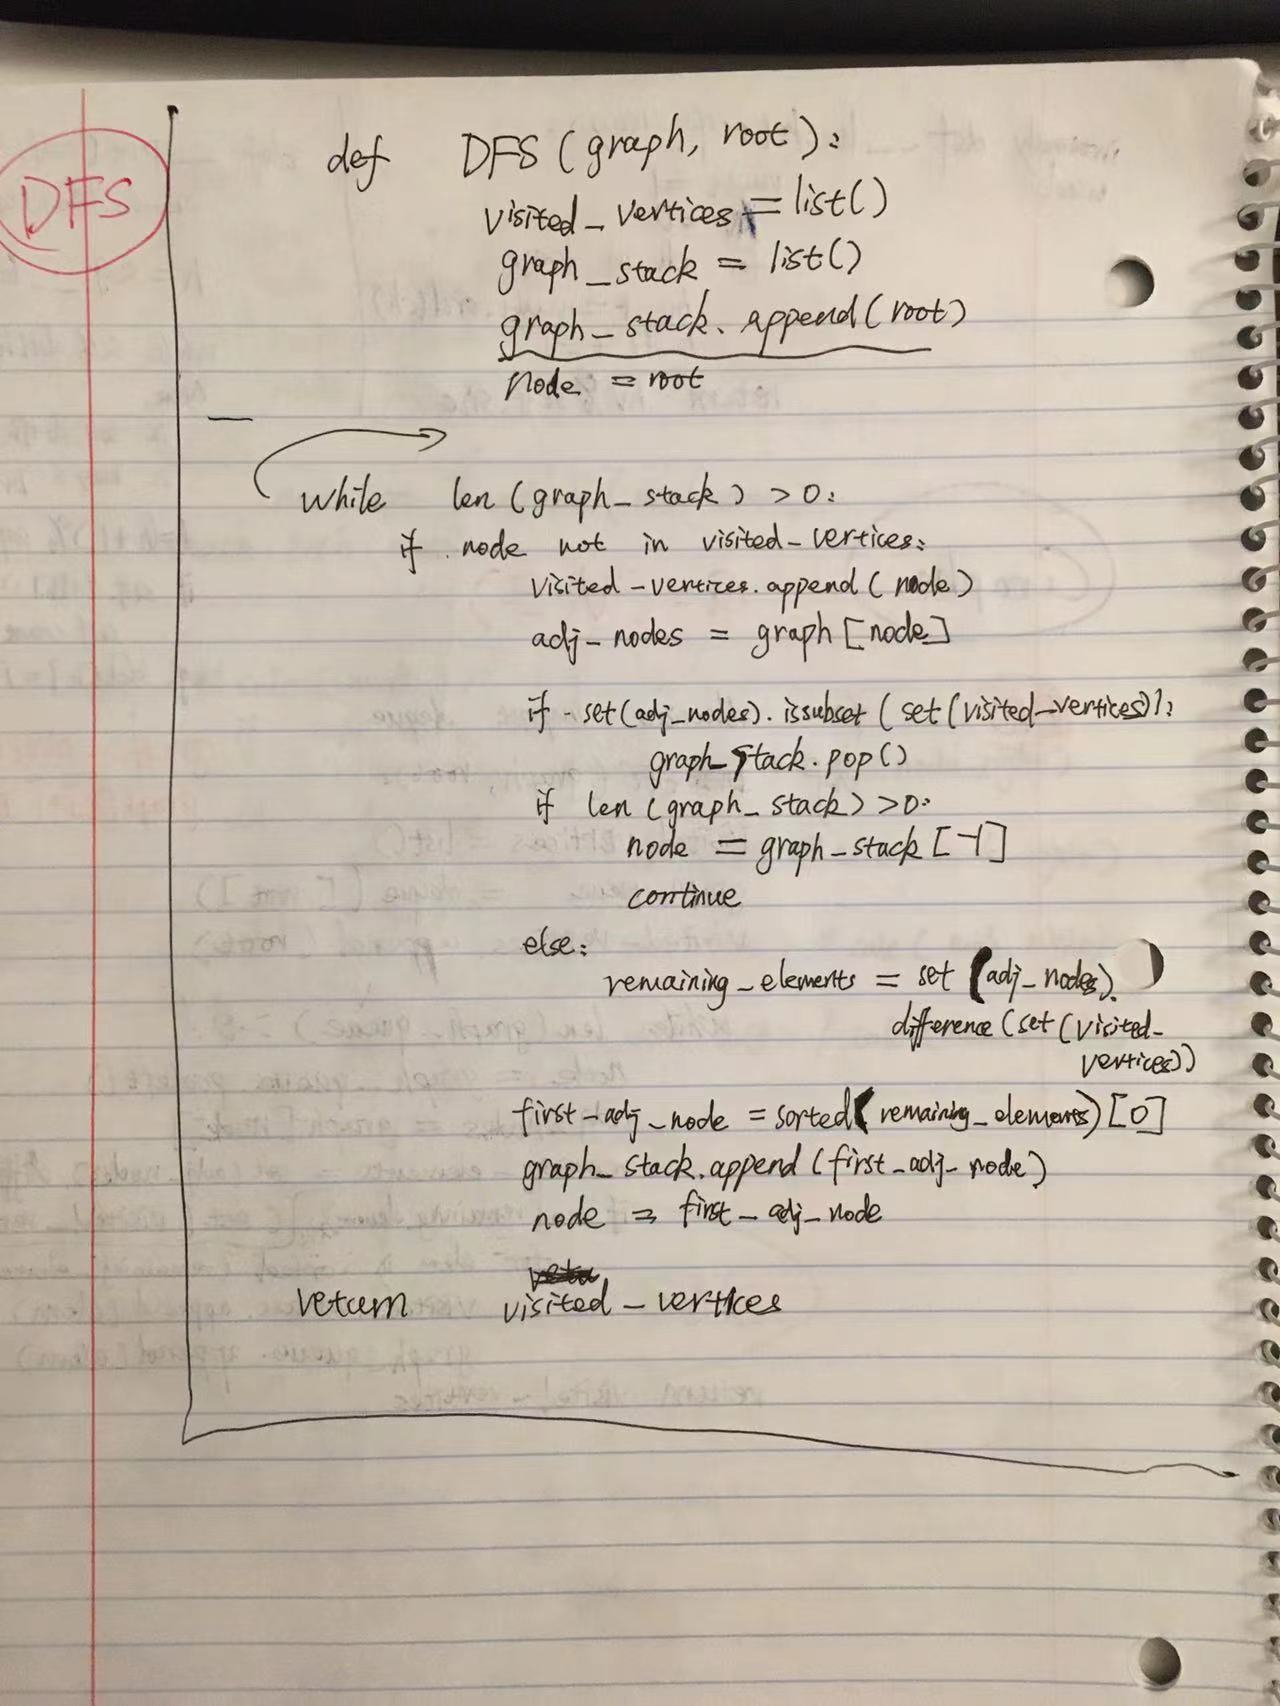 DFS
def DFS (graph, root):
visited_vertices = list()
graph_stack = list()
graph_stack.append(root)
node = root
while len (graph_stack) >0:
if node not in visited_vertices:
visited_vertices.append(node)
adj_nodes = graph[node]
if set(adj_nodes).issubset (set(visited_vertices)):
graph_stack.pop()
if len (graph_stack) >0:
node = graph_stack [-1]
continue
else:
remaining_elements = set (adj_nodes).
difference (set (visited_
vertices))
first_adj_node = sorted(remaining_elements)[0]
graph_stack.append(first_adj_node)
node = first_adj_node
return visited_vertices